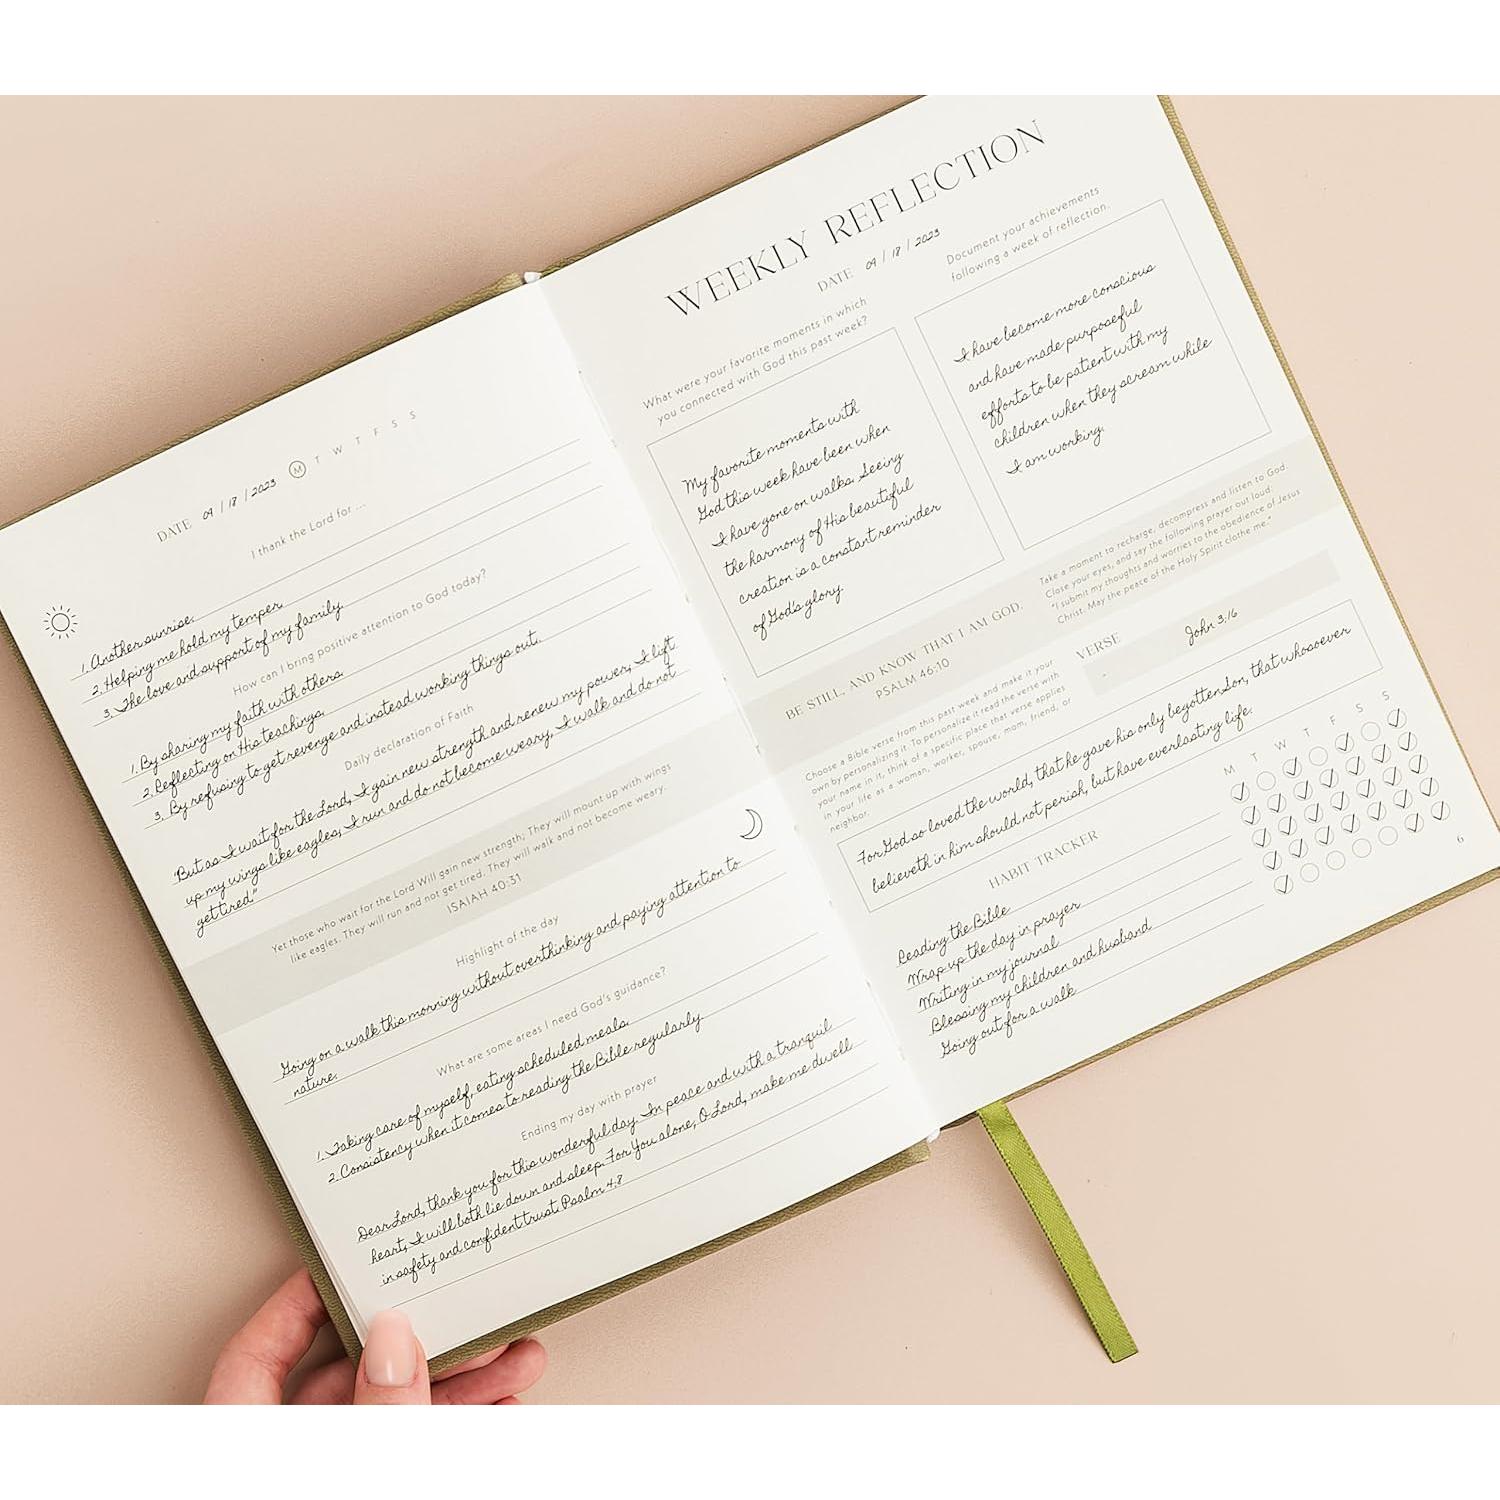 DATE 09 / 18 / 2023 M T W T F S S
I thank the Lord for ...
1. Another sunrise.
2. Helping me hold my temper.
3. The love and support of my family.
How can I bring positive attention to God today?
1. By sharing my faith with others.
2. Reflecting on His teachings.
3. By refusing to get revenge and instead working things out.
Daily declaration of Faith
But as I wait for the Lord, I gain new strength and renew my power, I lift
up my wings like eagles, I run and do not become weary, I walk and do not
get tired."
Yet those who wait for the Lord Will gain new strength; They will mount up with wings
like eagles. They will run and not get tired. They will walk and not become weary.
ISAIAH 40:31
Highlight of the day
Going on a walk this morning without overthinking and paying attention to
nature.
What are some areas I need God's guidance?
1. Taking care of myself, eating scheduled meals.
2. Consistency when it comes to reading the Bible regularly.
Ending my day with prayer
Dear Lord, thank you for this wonderful day. In peace and with a tranquil
heart, I will both lie down and sleep. For You alone, O Lord, make me dwell
in safety and confident trust. Psalm 4:8
WEEKLY REFLECTION
DATE 09 / 18 / 2023
What were your favorite moments in which
you connected with God this past week?
My favorite moments with
God this week have been when
I have gone on walks. Seeing
the harmony of His beautiful
creation is a constant reminder
of God's glory.
Document your achievements
following a week of reflection.
I have become more conscious
and have made purposeful
efforts to be patient with my
children when they scream while
I am working.
BE STILL, AND KNOW THAT I AM GOD.
PSALM 46:10
Take a moment to recharge, decompress and listen to God.
Close your eyes, and say the following prayer out loud:
"I submit my thoughts and worries to the obedience of Jesus
Christ. May the peace of the Holy Spirit clothe me."
Choose a Bible verse from this past week and make it your
own by personalizing it. To personalize it read the verse with
your name in it, think of a specific place that verse applies
in your life as a woman, worker, spouse, mom, friend, or
neighbor.
VERSE
John 3:16
For God so loved the world, that he gave his only begotten Son, that whosoever
believeth in him should not perish, but have everlasting life.
HABIT TRACKER
M T W T F S S
Reading the Bible
Wrap up the day in prayer
Writing in my journal
Blessing my children and husband
Going out for a walk
6